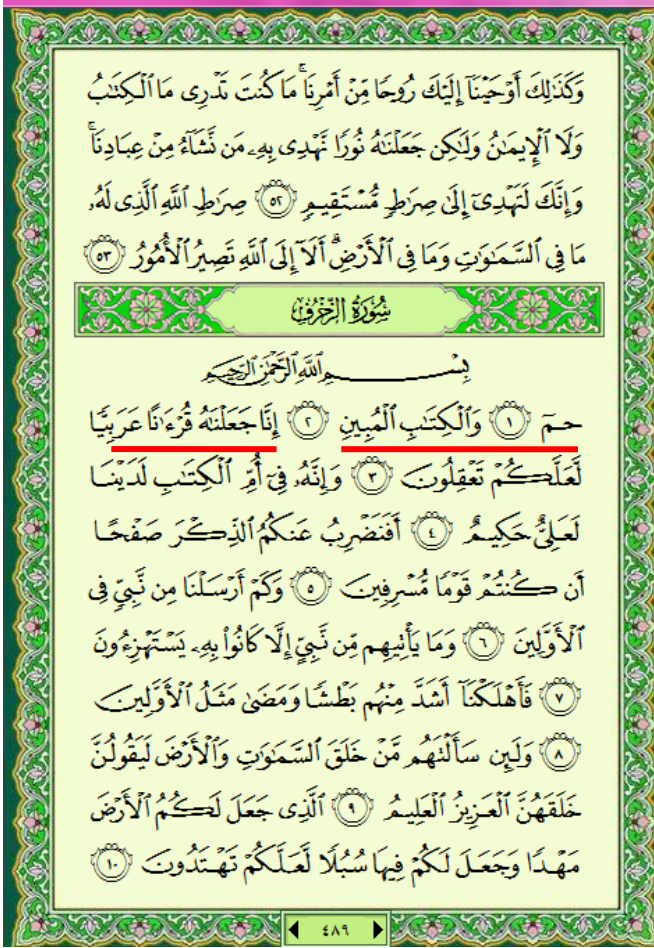 وَكَذَٰلِكَ أَوْحَيْنَآ إِلَيْكَ رُوحًا مِّنْ أَمْرِنَا ۚ مَا كُنتَ تَدْرِى مَا ٱلْكِتَٰبُ
وَلَا ٱلْإِيمَٰنُ وَلَٰكِن جَعَلْنَٰهُ نُورًا نَّهْدِى بِهِۦ مَن نَّشَآءُ مِنْ عِبَادِنَا ۚ
وَإِنَّكَ لَتَهْدِىٓ إِلَىٰ صِرَٰطٍ مُّسْتَقِيمٍ ٥٢ صِرَٰطِ ٱللَّهِ ٱلَّذِى لَهُۥ
مَا فِى ٱلسَّمَٰوَٰتِ وَمَا فِى ٱلْأَرْضِ ۗ أَلَآ إِلَى ٱللَّهِ تَصِيرُ ٱلْأُمُورُ ٥٣
سُورَةُ الزُّخْرُفِ
بِسْمِ ٱللَّهِ ٱلرَّحْمَٰنِ ٱلرَّحِيمِ
حمٓ ١ وَٱلْكِتَٰبِ ٱلْمُبِينِ ٢ إِنَّا جَعَلْنَٰهُ قُرْءَٰنًا عَرَبِيًّا
لَّعَلَّكُمْ تَعْقِلُونَ ٣ وَإِنَّهُۥ فِىٓ أُمِّ ٱلْكِتَٰبِ لَدَيْنَا
لَعَلِىٌّ حَكِيمٌ ٤ أَفَنَضْرِبُ عَنكُمُ ٱلذِّكْرَ صَفْحًا
أَن كُنتُمْ قَوْمًا مُّسْرِفِينَ ٥ وَكَمْ أَرْسَلْنَا مِن نَّبِىٍّ فِى
ٱلْأَوَّلِينَ ٦ وَمَا يَأْتِيهِم مِّن نَّبِىٍّ إِلَّا كَانُوا۟ بِهِۦ يَسْتَهْزِءُونَ
٧ فَأَهْلَكْنَآ أَشَدَّ مِنْهُم بَطْشًا وَمَضَىٰ مَثَلُ ٱلْأَوَّلِينَ
٨ وَلَئِن سَأَلْتَهُم مَّنْ خَلَقَ ٱلسَّمَٰوَٰتِ وَٱلْأَرْضَ لَيَقُولُنَّ
خَلَقَهُنَّ ٱلْعَزِيزُ ٱلْعَلِيمُ ٩ ٱلَّذِى جَعَلَ لَكُمُ ٱلْأَرْضَ
مَهْدًا وَجَعَلَ لَكُمْ فِيهَا سُبُلًا لَّعَلَّكُمْ تَهْتَدُونَ ١٠
٤٨٩